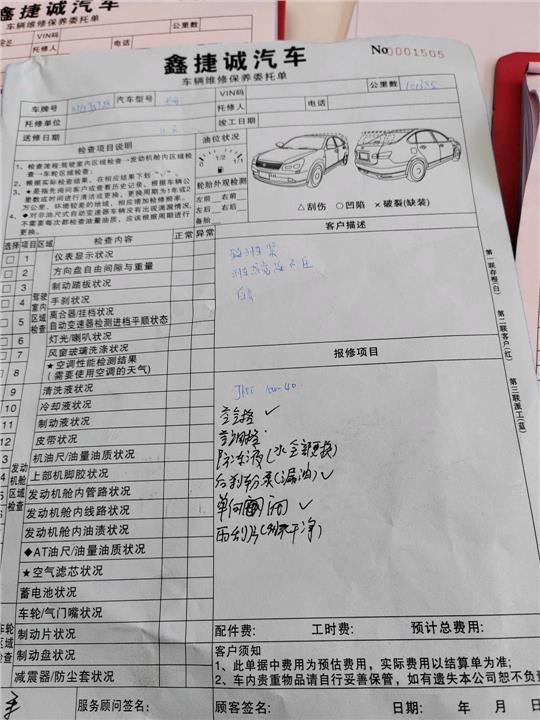 VIN码
公里数
托修人
电话
鑫捷诚汽车
No 0001505
车辆维修保养委托单
车牌号
汽车型号
VIN码
公里数
托修单位
托修人
电话
送修日期
竣工日期
检查项目说明
油位状况
1/2
1、检查流程:驾驶室内区域检查→发动机舱内区域检查→车轮区域检查;
2、根据实际检查结果,在相应结果下划
3、★是指先询问客户或查看历史记录,根据车辆公里数或时间进行清洁或更换。更换周期为1年或2万公里、环境较差的地域,相应增加检修频率。
4、◆对非油尺式自动变速器车辆没有出现渗漏情况,不需要每次都检查油量油质,应该根据周期进行更换。
轮胎外观检测
左前 右前
左后 右后
备胎:
△刮伤 ○凹陷 ×破裂(缺装)
选择 项目 区域 检查内容 正常 异常
客户描述
驾驶室内区域检查
1 仪表显示状况
2 方向盘自由间隙与重量
3 制动踏板状况
4 手刹状况
5 离合器/挂档状况
自动变速器检测进档平顺状态
6 灯光/喇叭状况
7 风窗玻璃洗涤状况
8 ★空调性能检测结果
(需要使用空调的天气)
报修项目
发动机舱区域检查
9 清洗液状况
10 冷却液状况
11 制动液状况
12 皮带状况
13 机油尺/油量油质状况
上部机脚胶状况
发动机舱内管路状况
发动机舱内线路状况
发动机舱内油渍状况
◆AT油尺/油量油质状况
★空气滤芯状况
蓄电池状况
车轮区域检查
车轮/气门嘴状况
制动片状况
制动盘状况
减震器/防尘套状况
10w-40
空气格 ✓
防冻液(水全部更换)
后刹分泵(漏油) ✓
雨刮片(刮不干净)
第一联存根(白)
第二联客户(红)
第三联派工(蓝)
配件费: 工时费: 预计总费用:
客户须知
1、此单据中费用为预估费用,实际费用以结算单为准;
2、车内贵重物品请自行妥善保管,如有遗失本公司恕不负责
服务顾问签名: 顾客签名: 日期: 年 月 日